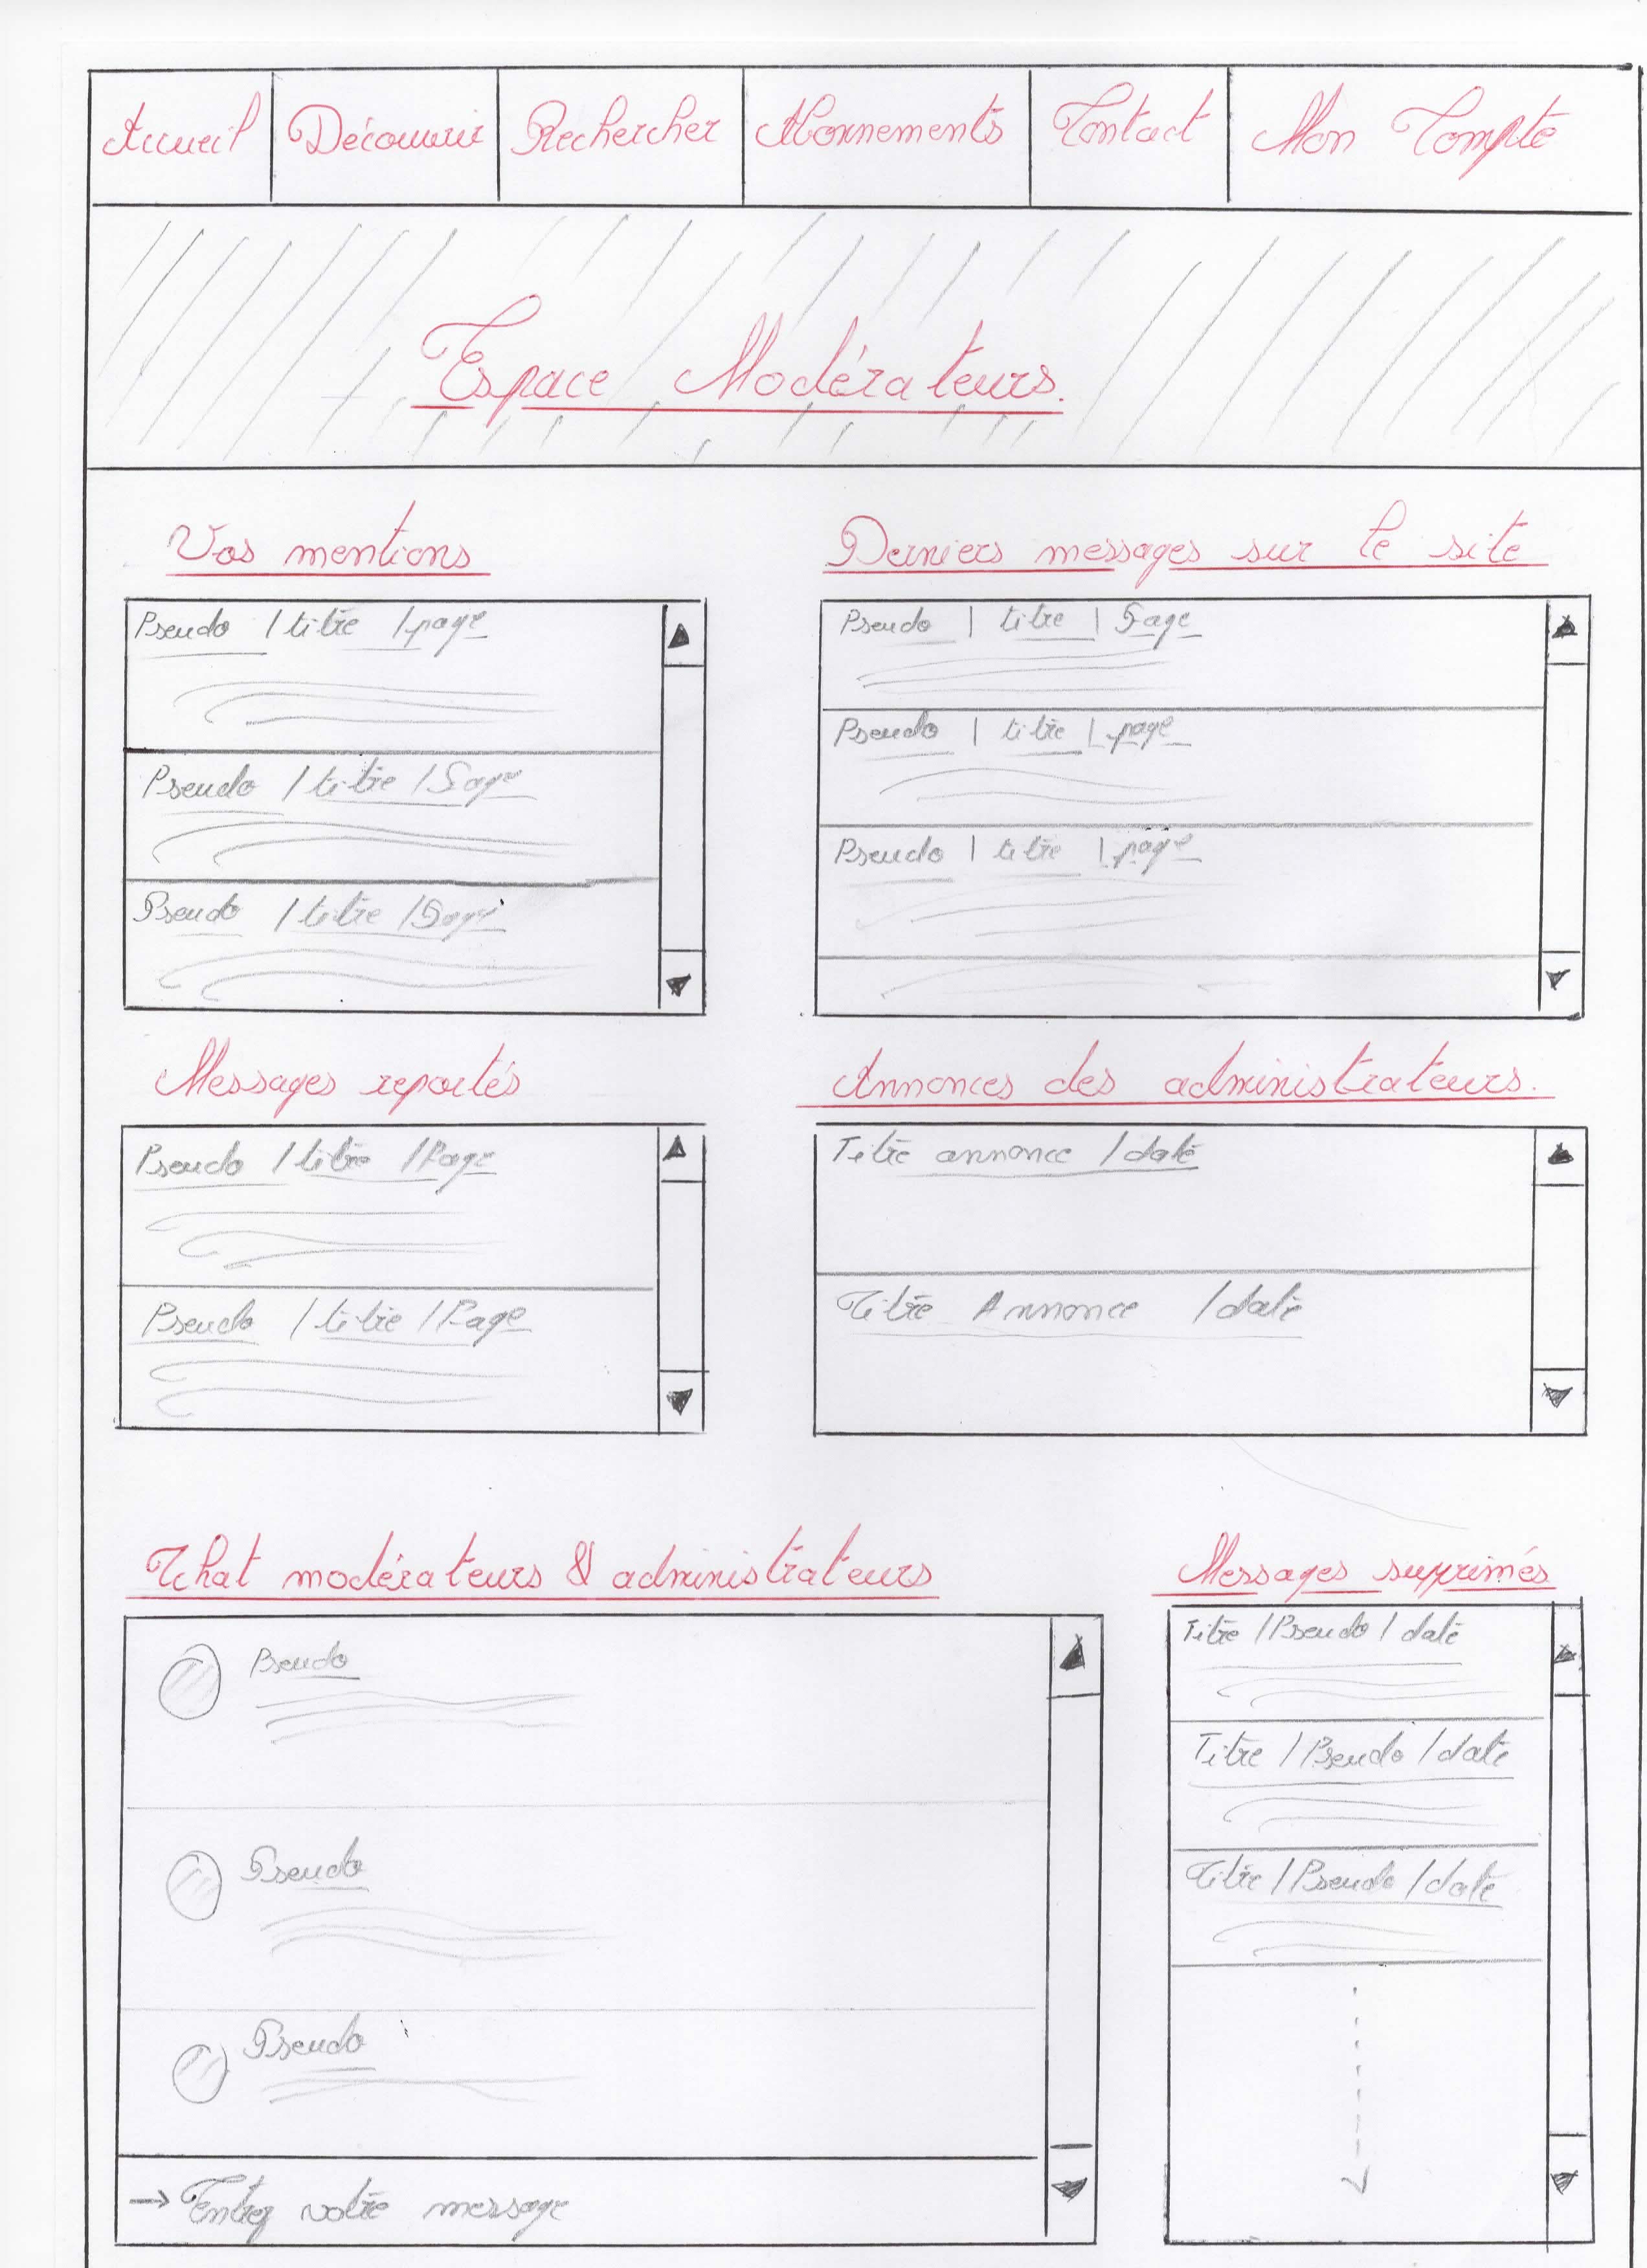 Accueil Découvrir Rechercher Abonnements Contact Mon Compte
Espace Modérateurs.
Vos mentions
Pseudo / titre / page
Pseudo / titre / Page
Pseudo / titre / Page
Derniers messages sur le site
Pseudo | titre | Page
Pseudo | titre | page
Pseudo | titre | page
Messages reportés
Pseudo / titre / Page
Pseudo / titre / Page
Annonces des administrateurs.
Titre annonce / date
Titre Annonce / date
Tchat modérateurs & administrateurs
Pseudo
Pseudo
Pseudo
→ Entrez votre message
Messages suprimés
Titre / Pseudo / date
Titre / Pseudo / date
Titre / Pseudo / date